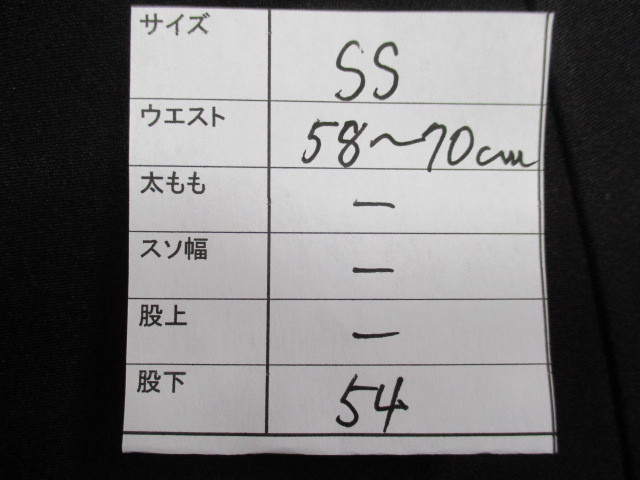 サイズ SS
ウエスト 58～70cm
太もも ー
スソ幅 ー
股上 ー
股下 54